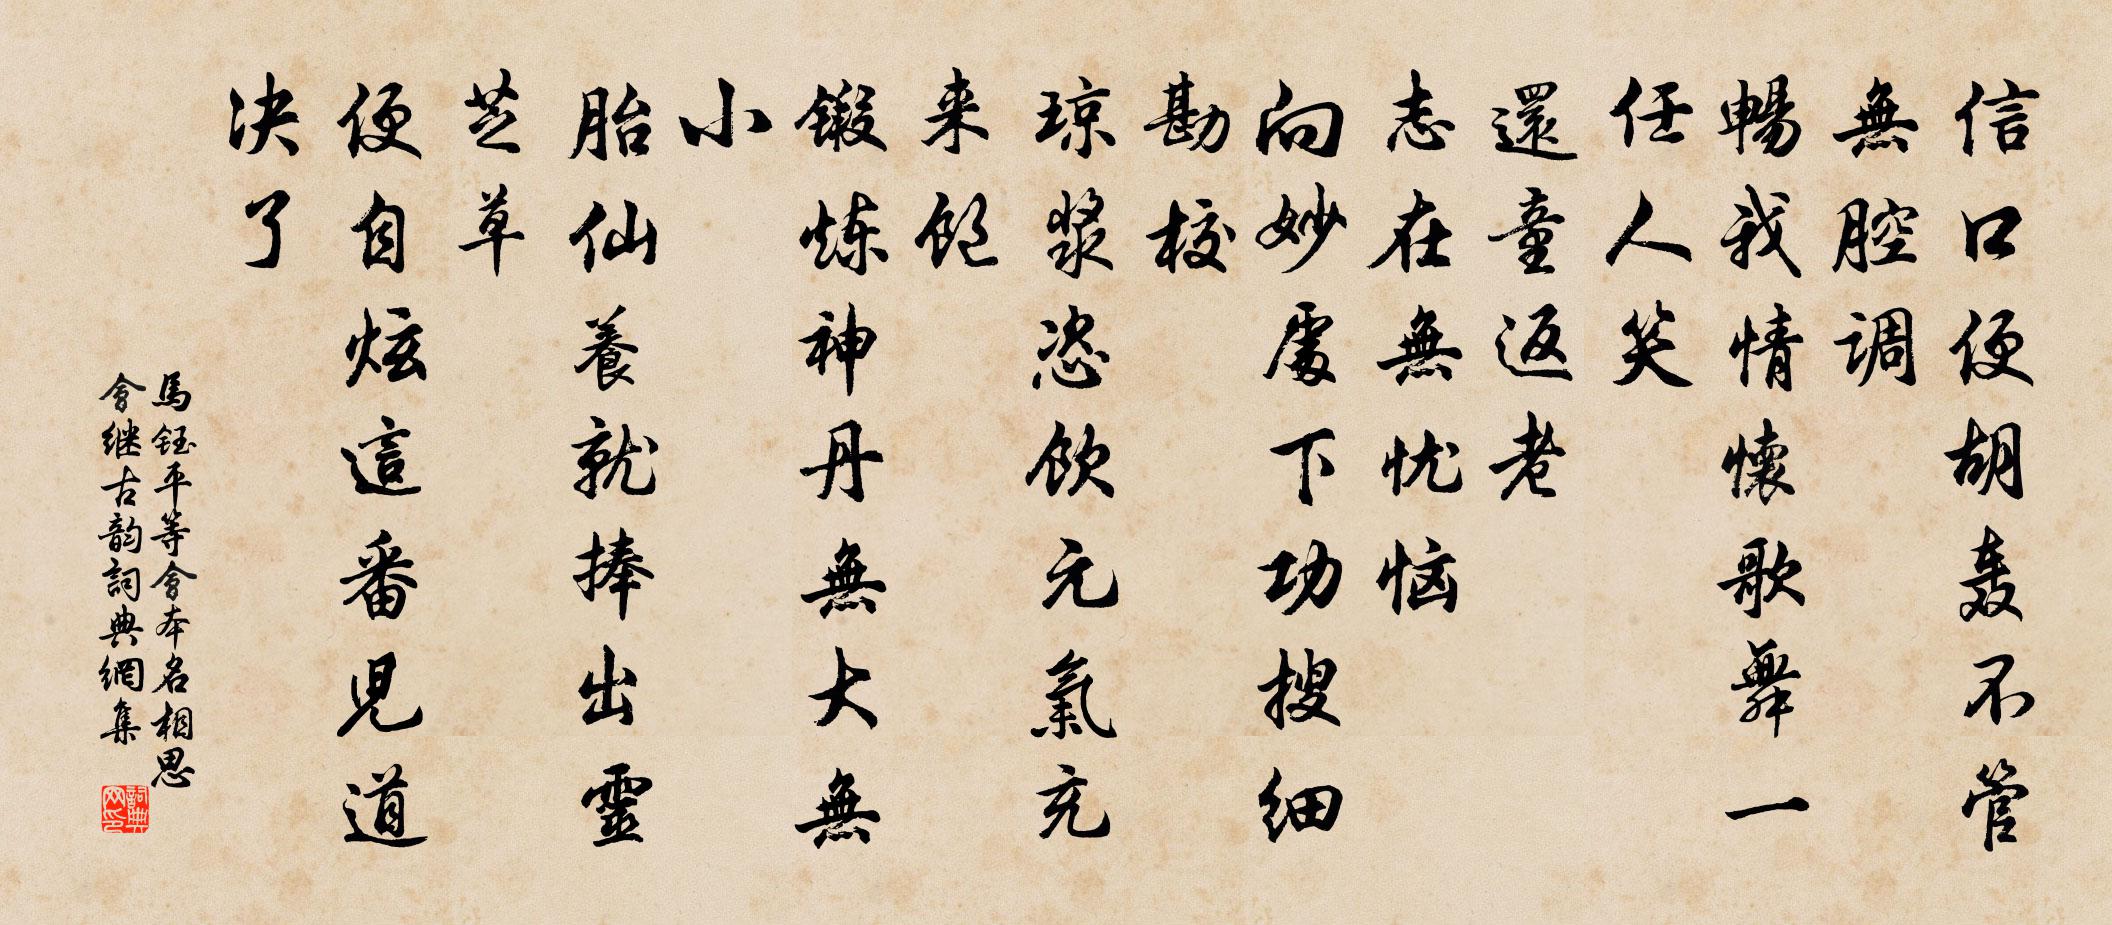 信口便胡轰不管
無腔調
暢我情懷歌舞一
任人笑
還童返老
志在無忧恼
向妙處下功搜细
勘校
琼漿恣飲元氣充
来饱
鍛炼神丹無大無
小
胎仙養就捧出靈
芝草
便自炫這番児道
决了
馬鈺平等會本名相思
會继古韵詞典網集
詞典
网印